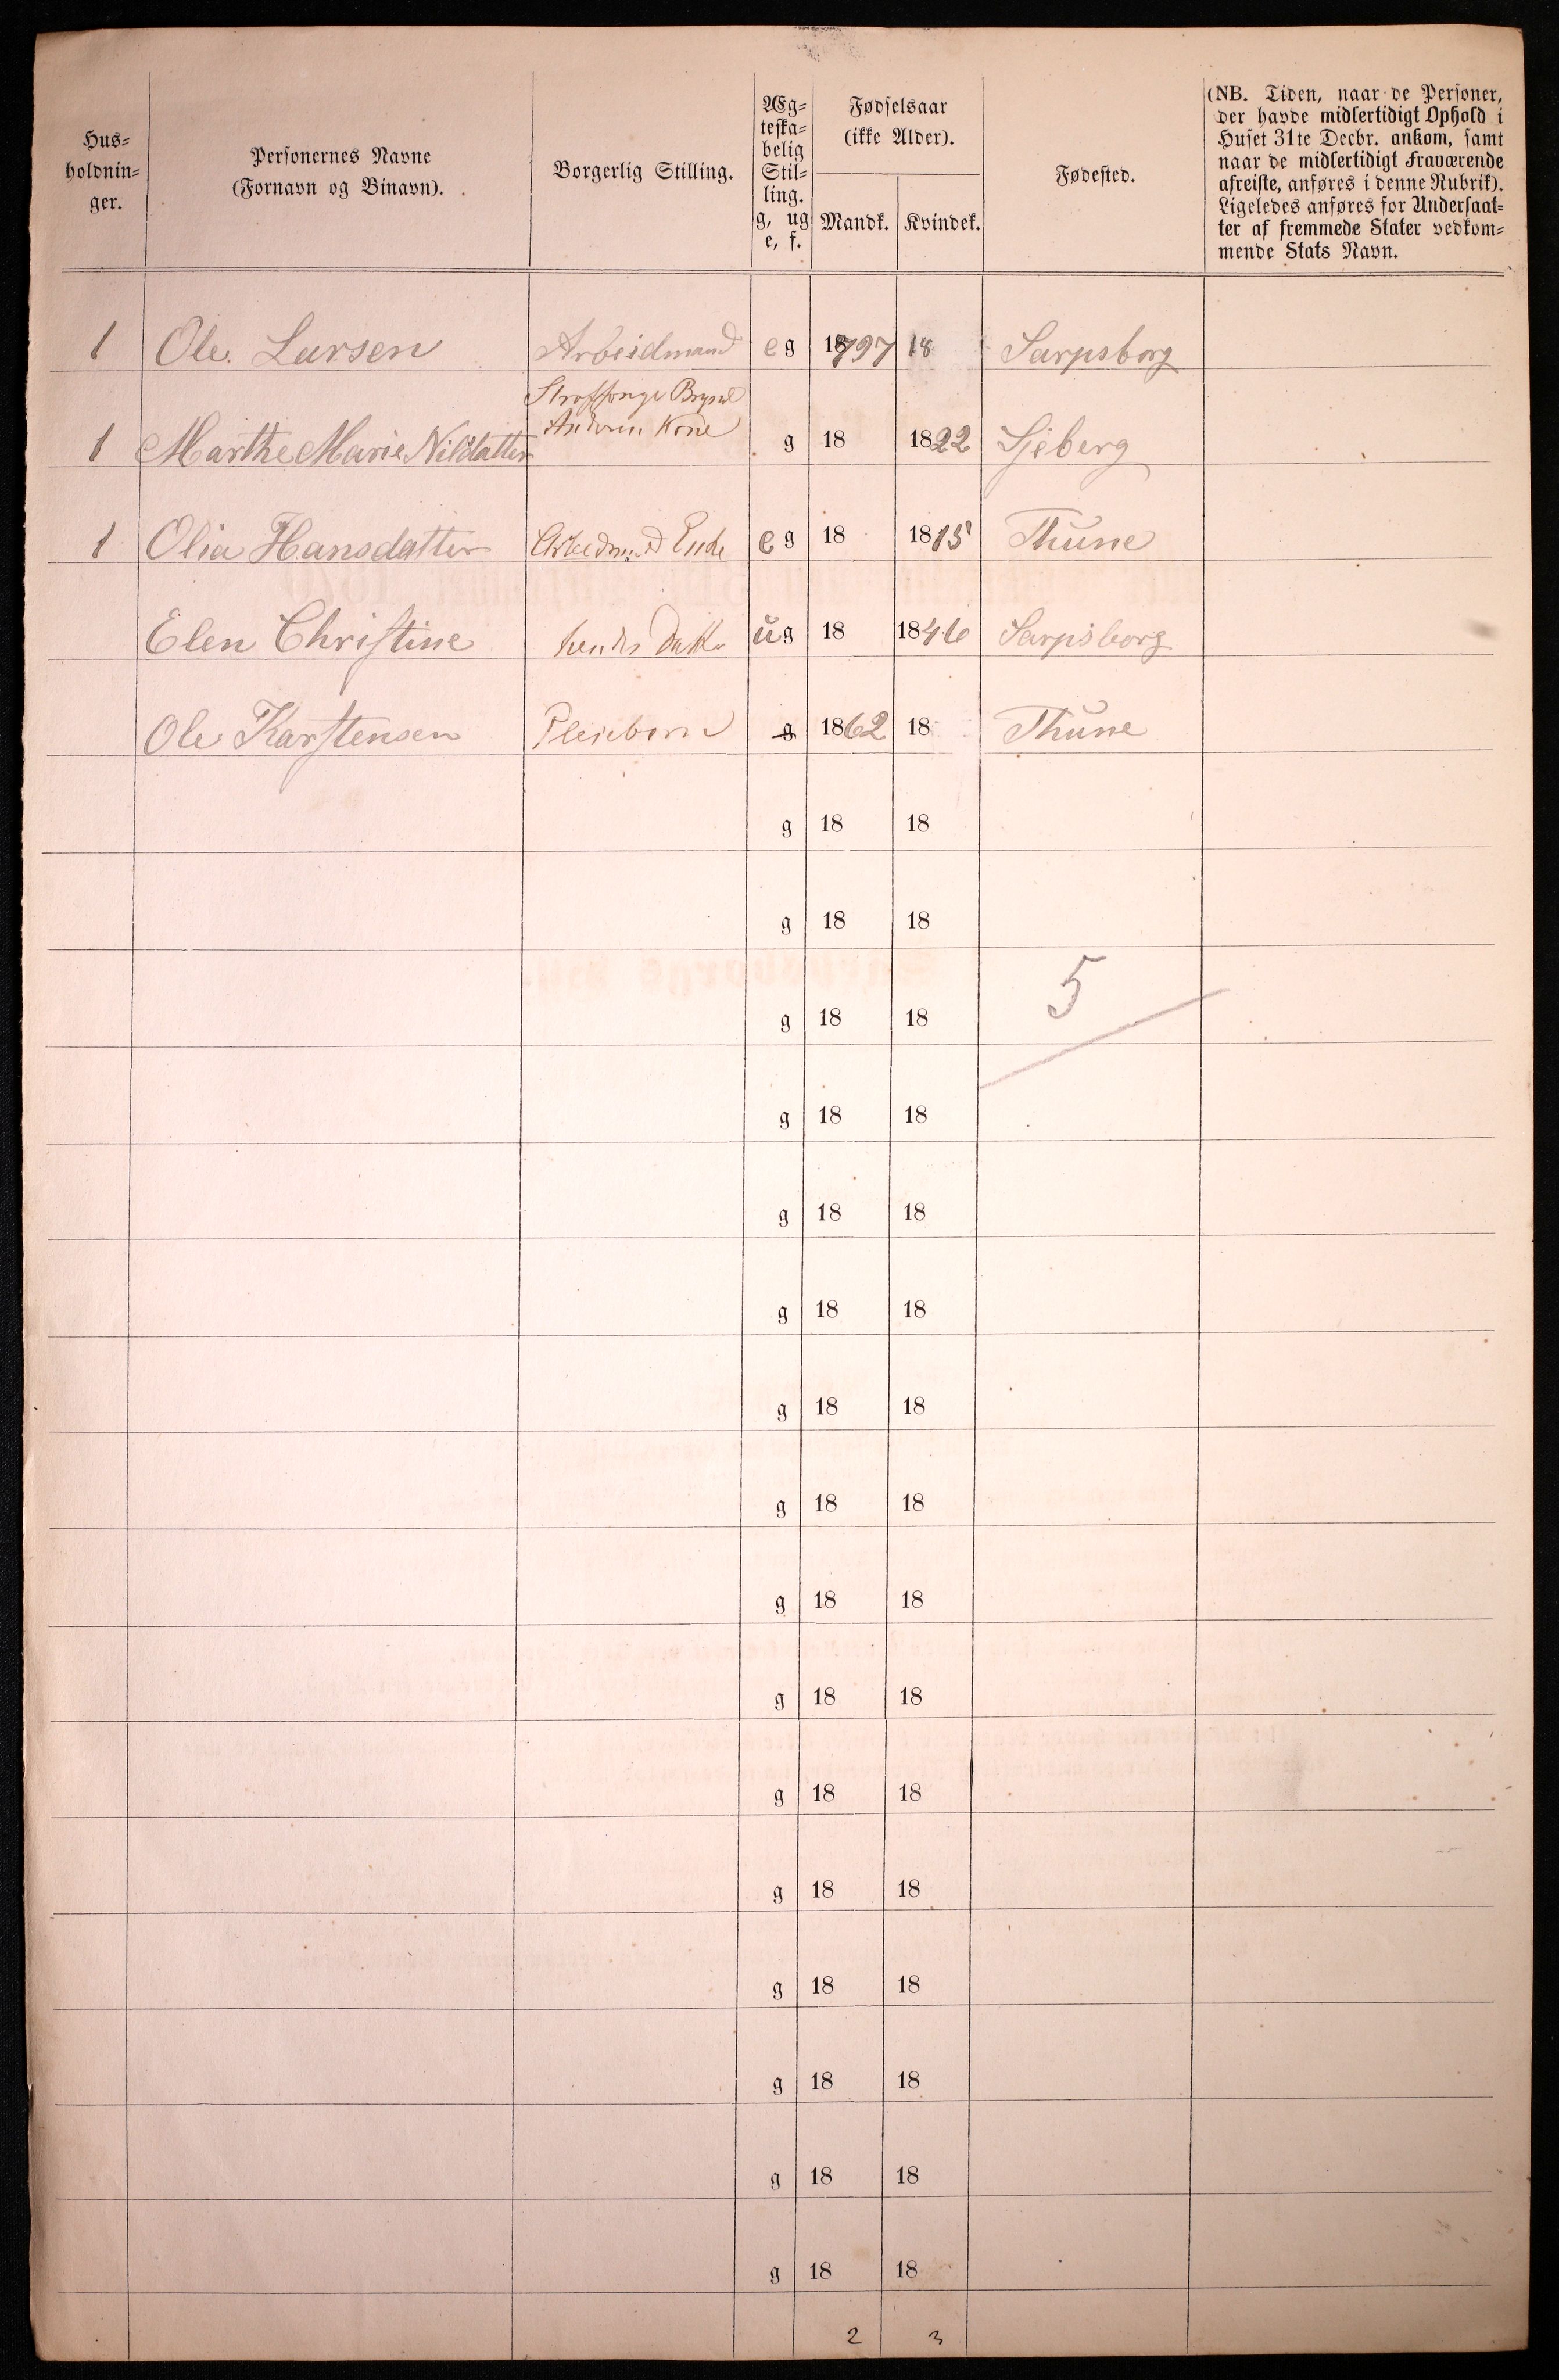 Hus=
holdnin=
ger.
Personernes Navne
(Fornavn og Binavn).
Borgerlig Stilling.
Æg=
teska=
belig
Stil=
ling.
g, ug
e, f.
Fødselsaar
(ikke Alder).
Mandk.
Kvindek.
Fødested.
(NB. Tiden, naar de Personer,
der havde midlertidigt Ophold i
Huset 31te Decbr. ankom, samt
naar de midlertidigt Fraværende
afreiste, anføres i denne Rubrik).
Ligeledes anføres for Undersaat=
ter af fremmede Stater vedkom=
mende Stats Navn.
1 Ole Larsen Arbeidmand e g 1797 18 Sarpsborg
Straffange
1 Marthe Marie Nilsdatter Kone g 18 1822 Sjeberg
1 Olia Hansdatter Enke e g 18 1815 Thune
Elen Christine hendes Datter ug 18 1846 Sarpsborg
Ole Karstensen Pleiebarn g 1862 18 Thune
g 18 18
g 18 18
5
g 18 18
g 18 18
g 18 18
g 18 18
g 18 18
g 18 18
g 18 18
g 18 18
g 18 18
g 18 18
g 18 18
g 18 18
g 18 18
g 18 18
2 3